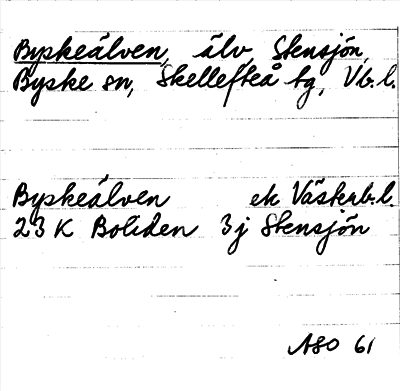 Byskeälven, älv, Stensjön,
Byske sn, Skellefteå tg, Vb.l.
Byskeälven ek Västerb.l.
23 K Boliden 3j Stensjön
ASO 61